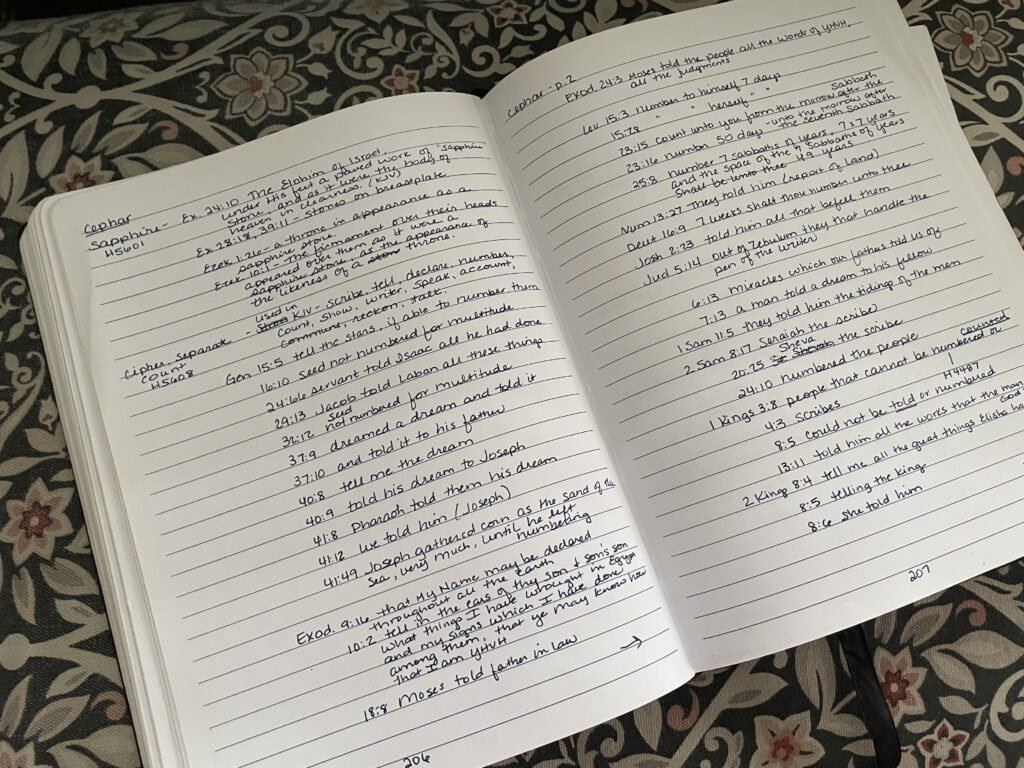 cephar
Sapphire - Ex. 24:10 The Elohim of Israel,
H5601
under His feet a paved work of "sapphire
stone, and as it were the body of
heaven in clearness. (KJV)
Ex 28:18, 39:11 - Stones on breastplate
Ezek 1:26 - a throne in appearance as a
sapphire stone.
Ezek 10:1 - The firmament over their heads
appeared over them as it were a
sapphire stone, as the appearance of
the likeness of a throne.
used in
cipher, separate - KJV - scribe, tell, declare, number,
count
H5608
count, show, writer, speak, account,
commune, reckon, talk.
Gen 15:5 tell the stars, if able to number them
16:10 seed not numbered for multitude
24:66 servant told Isaac all he had done
29:13 Jacob told Laban all these things
seed
32:12 not numbered for multitude
37:9 dreamed a dream and told it
37:10 and told it to his father
40:8 tell me the dream
40:9 told his dream to Joseph
41:8 Pharaoh told them his dream
41:12 we told him (Joseph)
41:49 Joseph gathered corn as the sand of the
sea, very much, until he left
numbering
Exod. 9:16 that My Name may be declared
throughout all the earth
10:2 tell in the ears of thy son & son's son
what things I have wrought in Egypt
and my signs which I have done
among them; that ye may know how
that I am YHVH
18:8 Moses told father in law
→
206
cephar - p. 2
Exod. 24:3 Moses told the people all the words of YHVH,
all the judgments
Lev 15:3 number to himself 7 days
15:28 " " herself " "
23:15 count unto you from the morrow after the Sabbath
23:16 number 50 days - unto the morrow after
the seventh Sabbath
25:8 number 7 sabbaths of years, 7x7 years
and the space of the 7 Sabbaths of years
shall be unto thee 49 years
Num 13:27 They told him (report of land)
Deut 16:9 7 weeks shalt thou number unto thee
Josh 2:23 told him all that befell them
Jud 5:14 out of Zebulun they that handle the
pen of the writer
6:13 miracles which our fathers told us of
7:13 a man told a dream to his fellow
1 Sam 11:5 they told him the tidings of the men
2 Sam 8:17 Seraiah the scribe)
20:25 Sheva the scribe
24:10 numbered the people
1 Kings 3:8 people that cannot be numbered or counted
4:3 scribes
H4487
8:5 could not be told or numbered
13:11 told him all the works that the man
God
2 Kings 8:4 tell me all the great things Elisha
8:5 telling the king
8:6 she told him
207